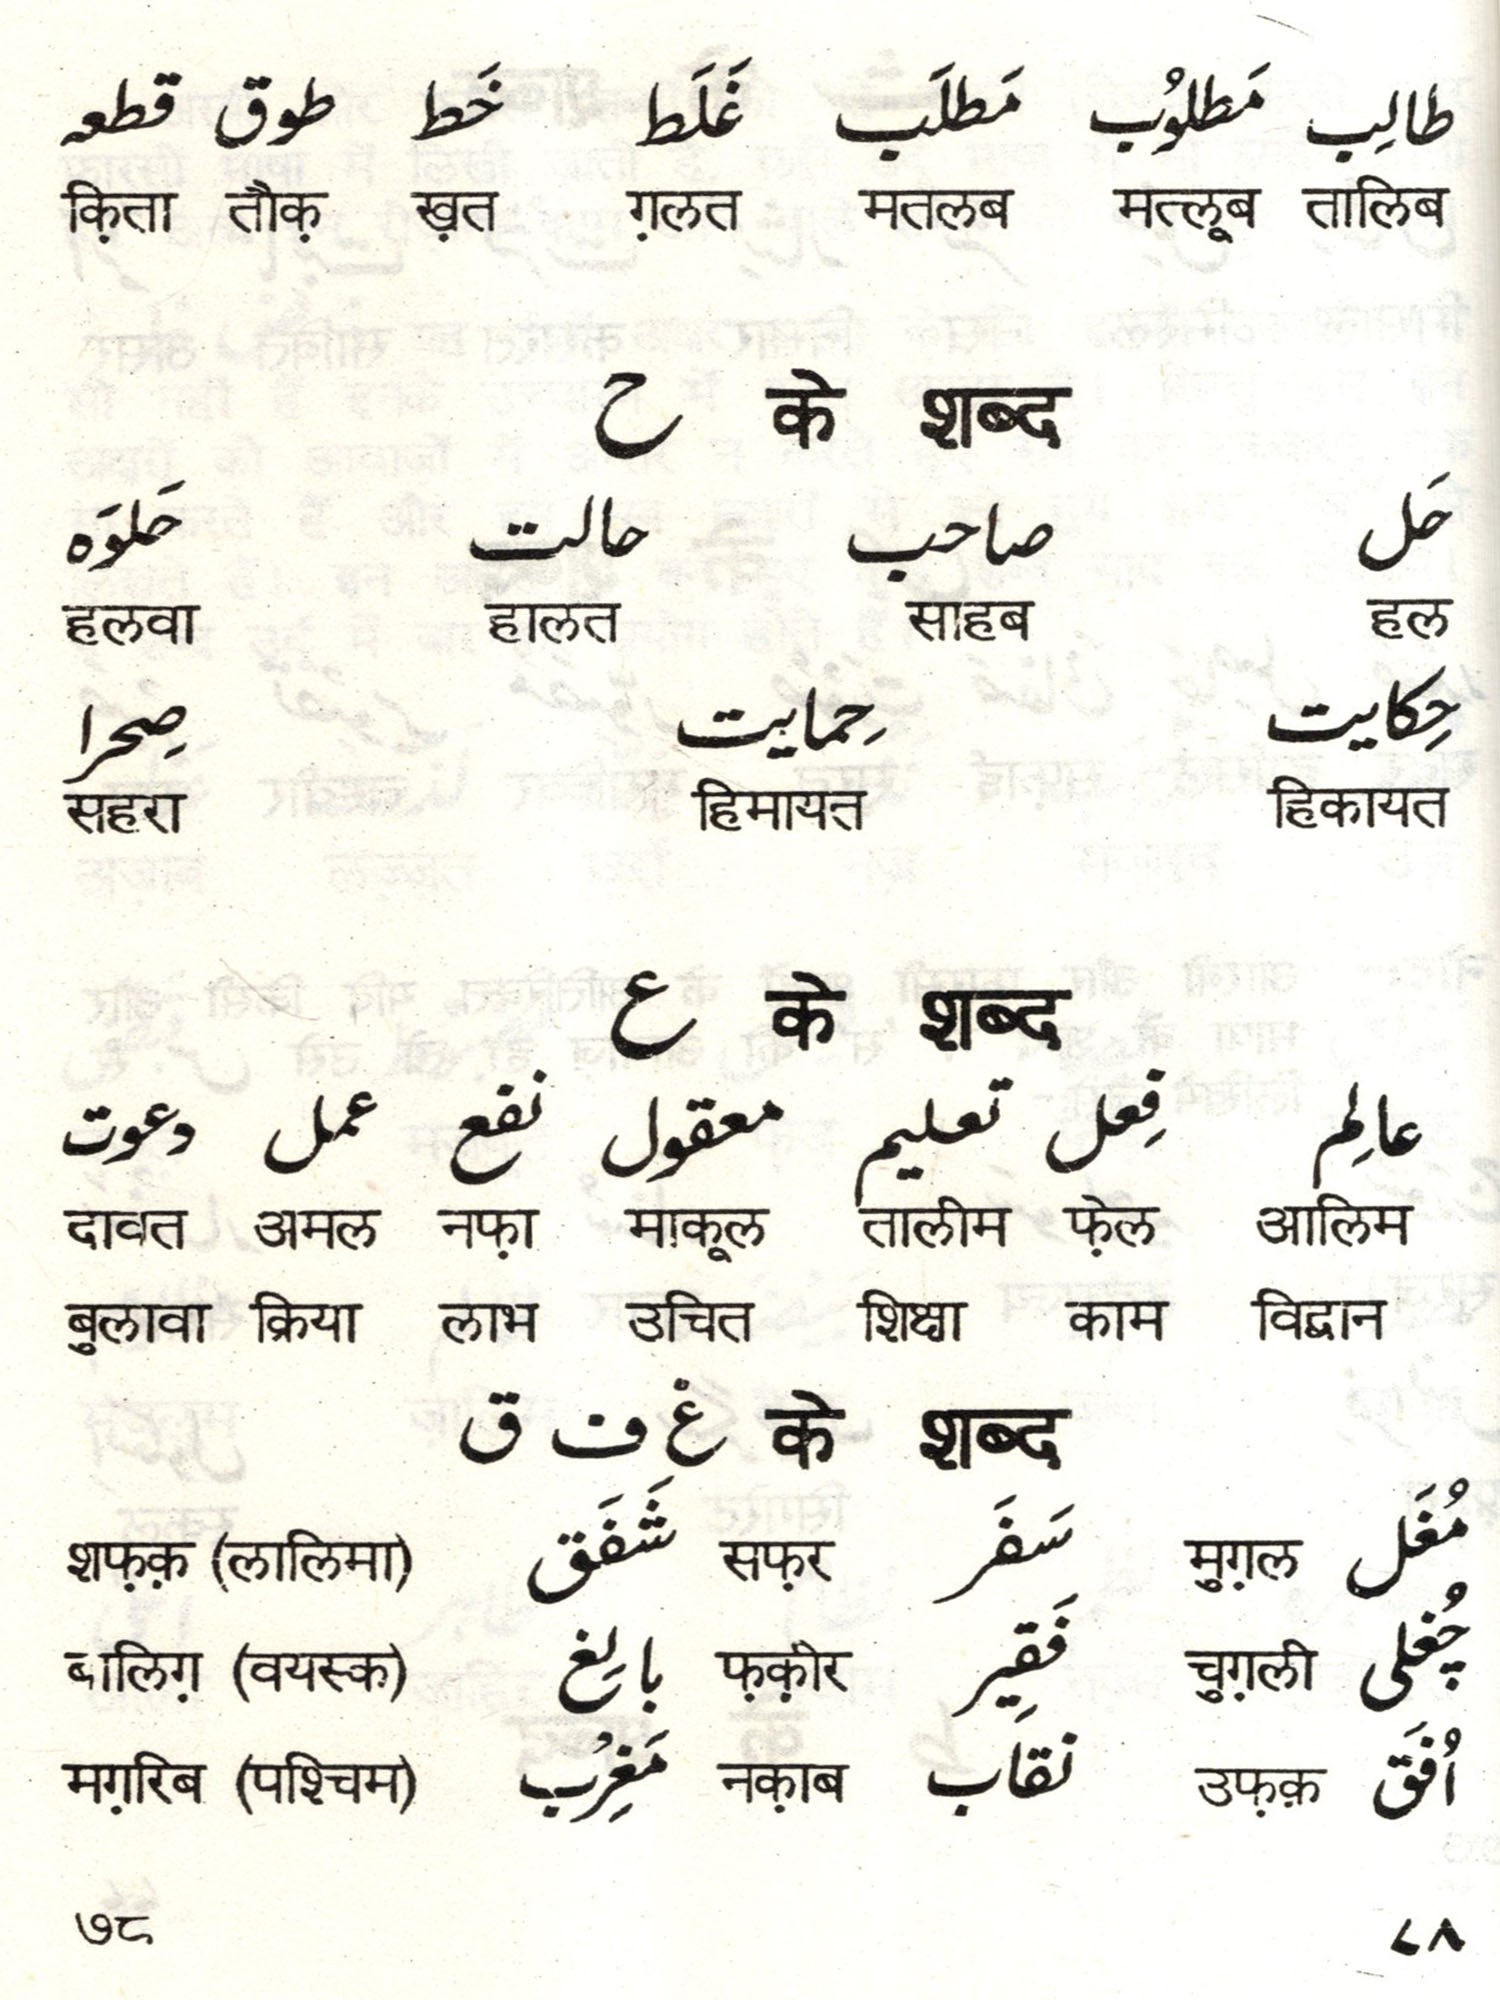 طالِب مَطلوُب مَطلَب غَلَط خَط طوق قطعہ
क़िता तौक़ ख़त ग़लत मतलब मत्लूब तालिब
ح के शब्द
حَل صاحب حالت حَلوَہ
हलवा हालत साहब हल
حِکایت حِمایت صِحرا
सहरा हिमायत हिकायत
ع के शब्द
عالِم فِعل تعلیم معقول نفع عمل دعوت
दावत अमल नफ़ा माक़ूल तालीम फ़ेल आलिम
बुलावा क्रिया लाभ उचित शिक्षा काम विद्वान
غ ف ق के शब्द
शफ़क़ (लालिमा) شَفَق सफ़र سَفَر मुग़ल مُغَل
बालिग़ (वयस्क) بالِغ फ़क़ीर فَقِیر चुग़ली چُغلی
मग़रिब (पश्चिम) مَغرِب नक़ाब نقاب उफ़क़ اُفَق
७८ ۷۸